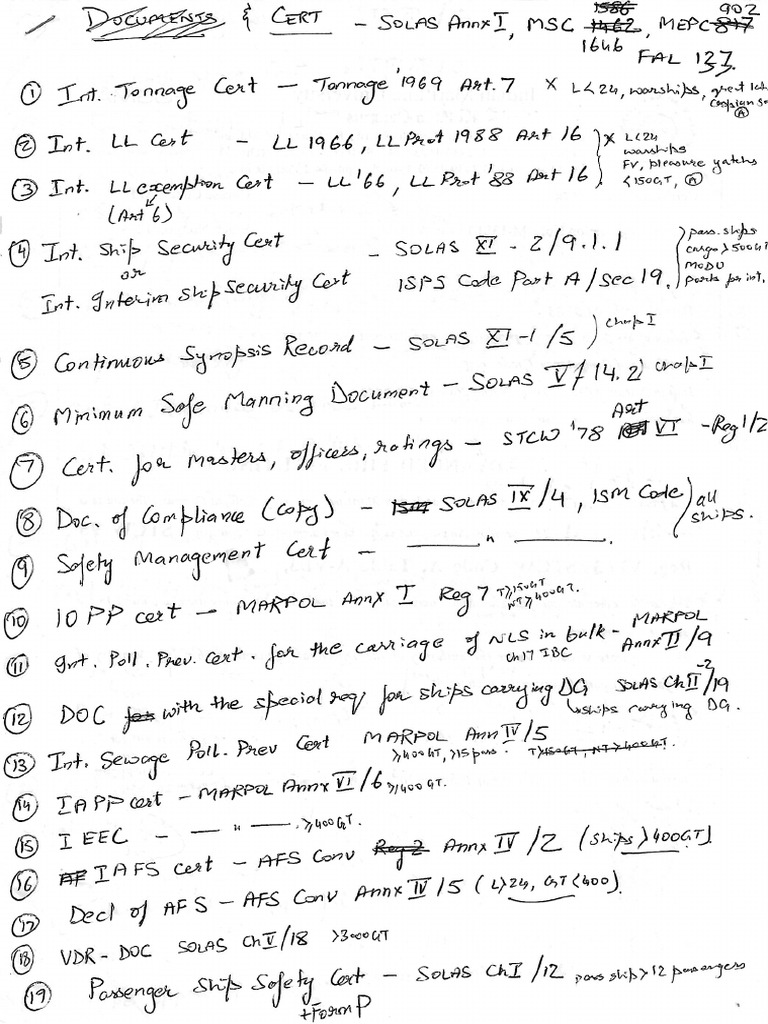 DOCUMENTS & CERT - SOLAS Annx I, MSC 1586 1462 1646, MEPC 817 902
FAL 133.
① Int. Tonnage Cert - Tonnage '1969 Art. 7 X L<24, warships, great
② Int. LL Cert - LL 1966, LL Prot 1988 Art 16
③ Int. LL exemption Cert - LL '66, LL Prot '88 Art 16
(Art 6)
X L<24
warships
FV, pleasure yatchs
<150GT, Ⓐ
④ Int. Ship Security Cert - SOLAS XI - 2/9.1.1
or
Int. Interim Ship Security Cert ISPS Code Part A/Sec 19.
pass. ships
cargo >500GT
MODU
⑤ Continuous Synopsis Record - SOLAS XI-1/5 ) Chap I
⑥ Minimum Safe Manning Document - SOLAS V/14.2 ) Chap I
⑦ Cert. for Masters, officers, ratings - STCW '78 Art VI - Reg 1/2
⑧ Doc. of Compliance (Copy) - ISM SOLAS IX/4, ISM Code
⑨ Safety Management Cert - —— " ——.
all ships.
⑩ IOPP cert - MARPOL Annx I Reg 7 T≥150GT
NT≥400GT.
⑪ Int. Poll. Prev. Cert. for the carriage of NLS in bulk - MARPOL Annx II/9
Ch17 IBC
⑫ DOC for with the special req for ships carrying DG SOLAS Ch II-2/19
↳ ships carrying DG.
⑬ Int. Sewage Poll. Prev Cert MARPOL Ann IV/5
≥400GT, >15 pass. T≥150GT, NT≥400GT.
⑭ IAPP cert - MARPOL Annx VI/6 ≥400GT.
⑮ IEEC - —— " ——. ≥400GT.
⑯ AF IAFS cert - AFS Conv Reg 2 Annx IV/2 (Ships >400GT).
⑰ Decl of AFS - AFS Conv Annx IV/5 (L>24, GT<400).
⑱ VDR - DOC SOLAS Ch V/18 >3000GT
⑲ Passenger Ship Safety Cert - SOLAS Ch I/12 pass ship >12 passengers
+Form P